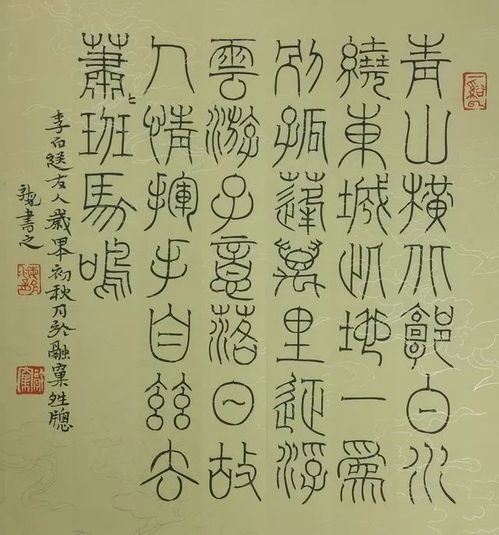 青山橫北郭白水
繞東城此地一爲
別孤蓬萬里征浮
雲游子意落日故
人情揮手自茲去
蕭〻班馬鳴
李白送友人歲初秋月於融窠牕
書之